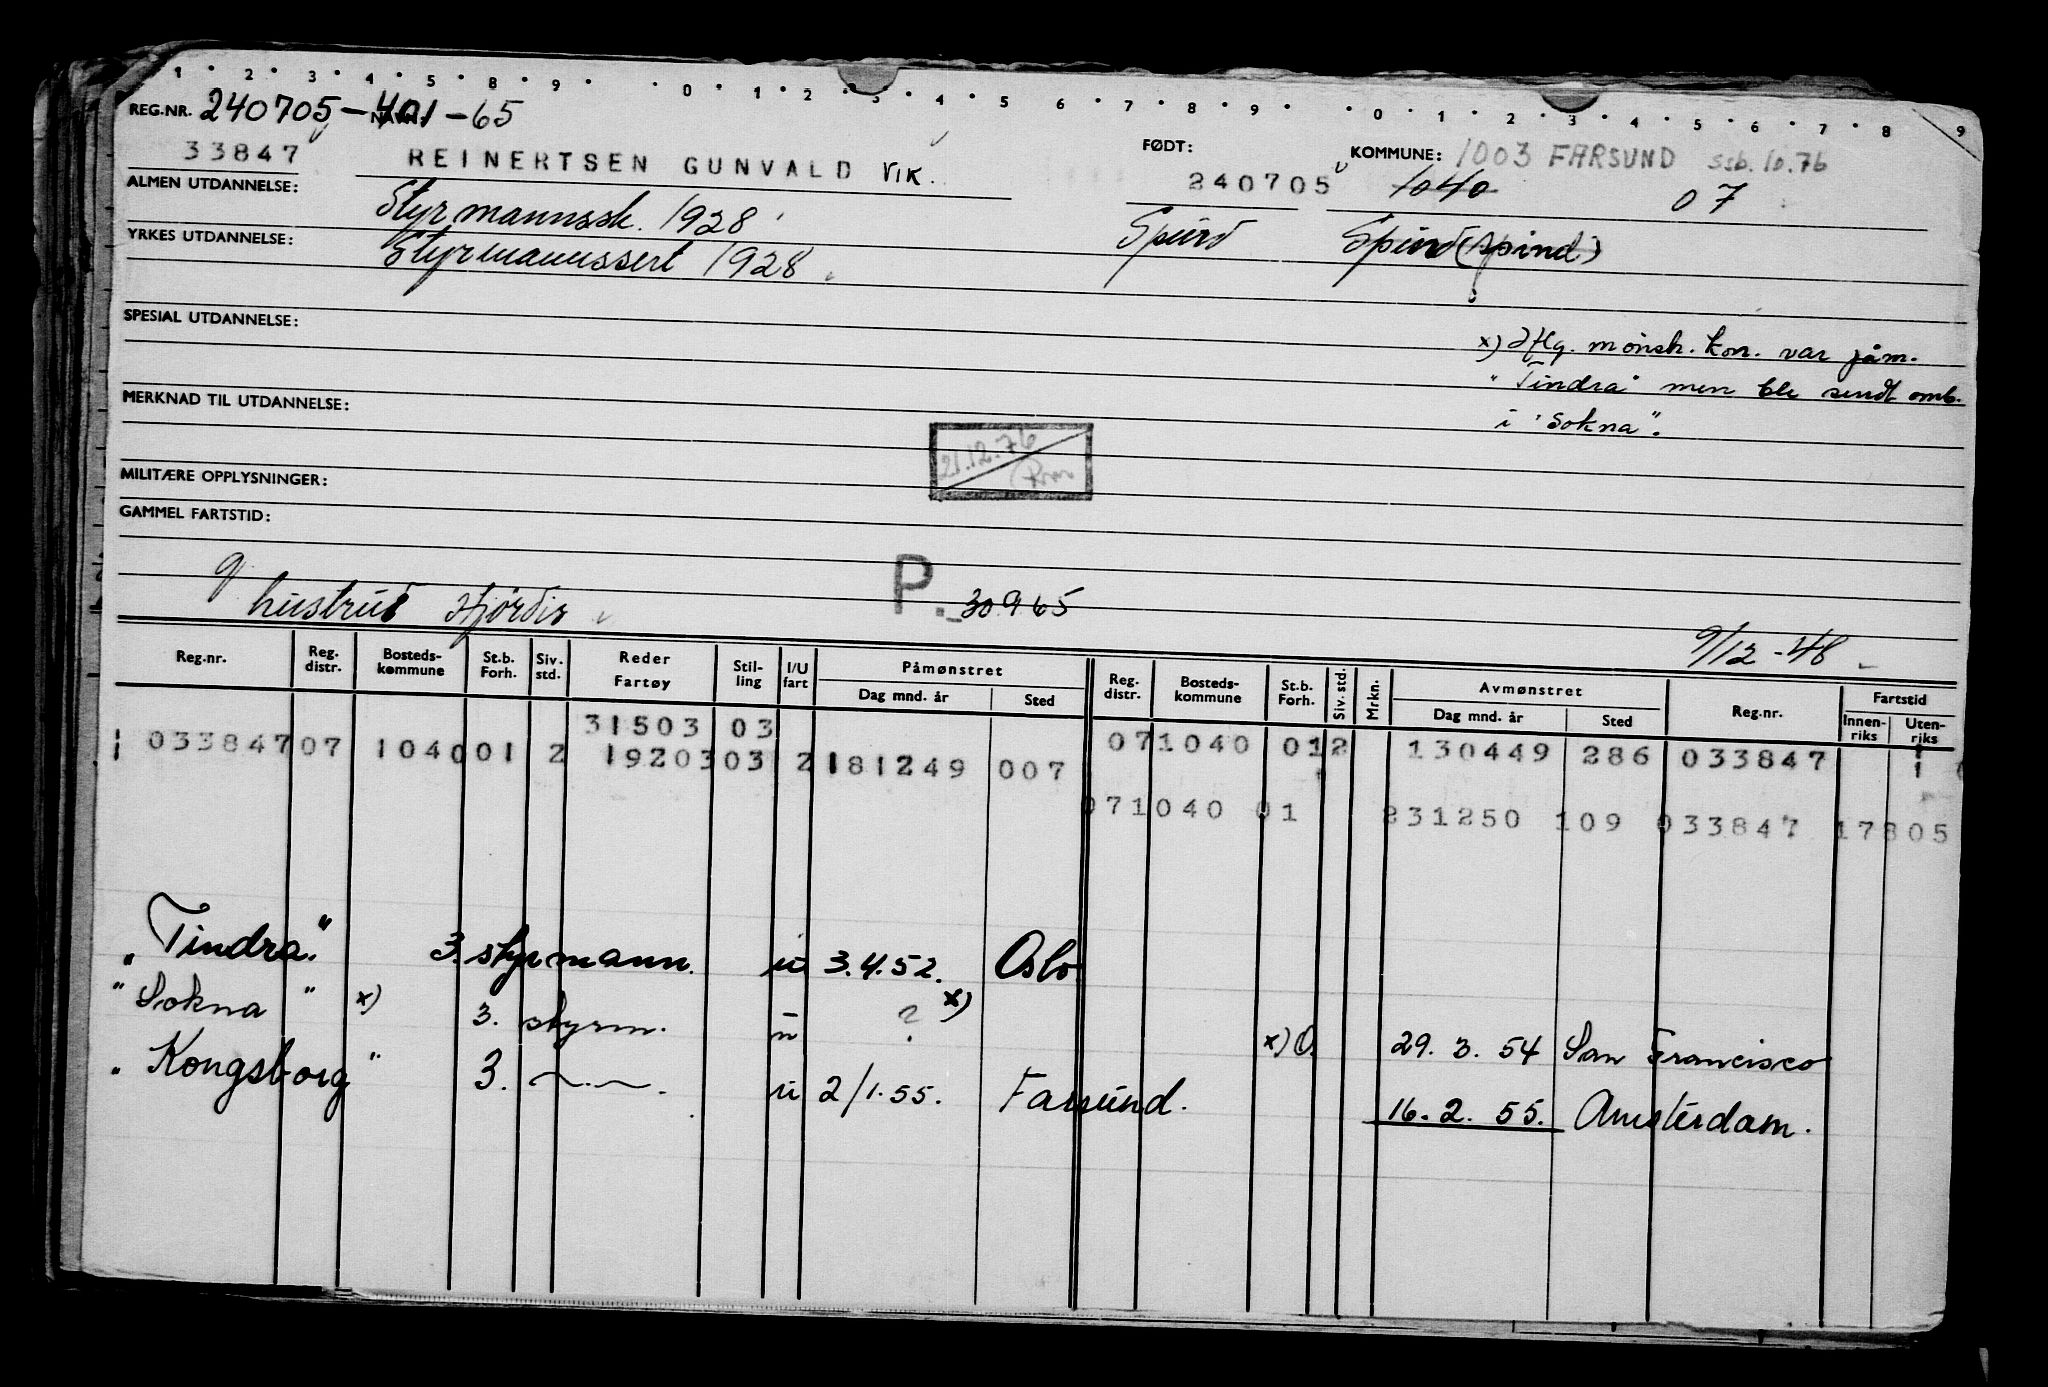 1 2 3 4 5 8 9 0 1 2 3 4 5 6 7 8 9 0 1 2 3 4 5 6 7 8 9
REG.NR. 240705-401-65
33847 REINERTSEN GUNVALD VIK. FØDT: 240705 KOMMUNE: 1003 FARSUND ssb. 10.76
1040 07
ALMEN UTDANNELSE: Styrmannssk. 1928 Spind Spind (Spind)
YRKES UTDANNELSE: Styrmannssert 1928.
SPESIAL UTDANNELSE:
x) Iflg. mönsk. kon. var påm.
"Tindra" men ble sendt omb.
i "Sokna".
MERKNAD TIL UTDANNELSE:
21.12.76
MILITÆRE OPPLYSNINGER:
GAMMEL FARTSTID:
g hustrud Hjördis P. 30965
9/12-48
Reg.nr. Reg. distr. Bosteds-kommune St.b. Forh. Siv. std. Reder Fartøy Stil-ling I/U fart Påmønstret Dag mnd. år Sted Reg. distr. Bosteds-kommune St.b. Forh. Siv. std. Mrkn. Avmønstret Dag mnd. år Sted Reg.nr. Fartstid Innen-riks Uten-riks
31503 03
1 033847 07 1040 01 2 19203 03 2 181249 007 07 1040 01 2 130449 286 033847 1
07 1040 01 231250 109 033847 17805
"Tindra" 3. styrmann. u 3.4.52. Oslo
"Sokna" x) 3. styrm. u ? x) x) O. 29. 3. 54 San Francisco
"Kongsborg" 3. —·—. u 2/1.55. Farsund. 16. 2. 55. Amsterdam.